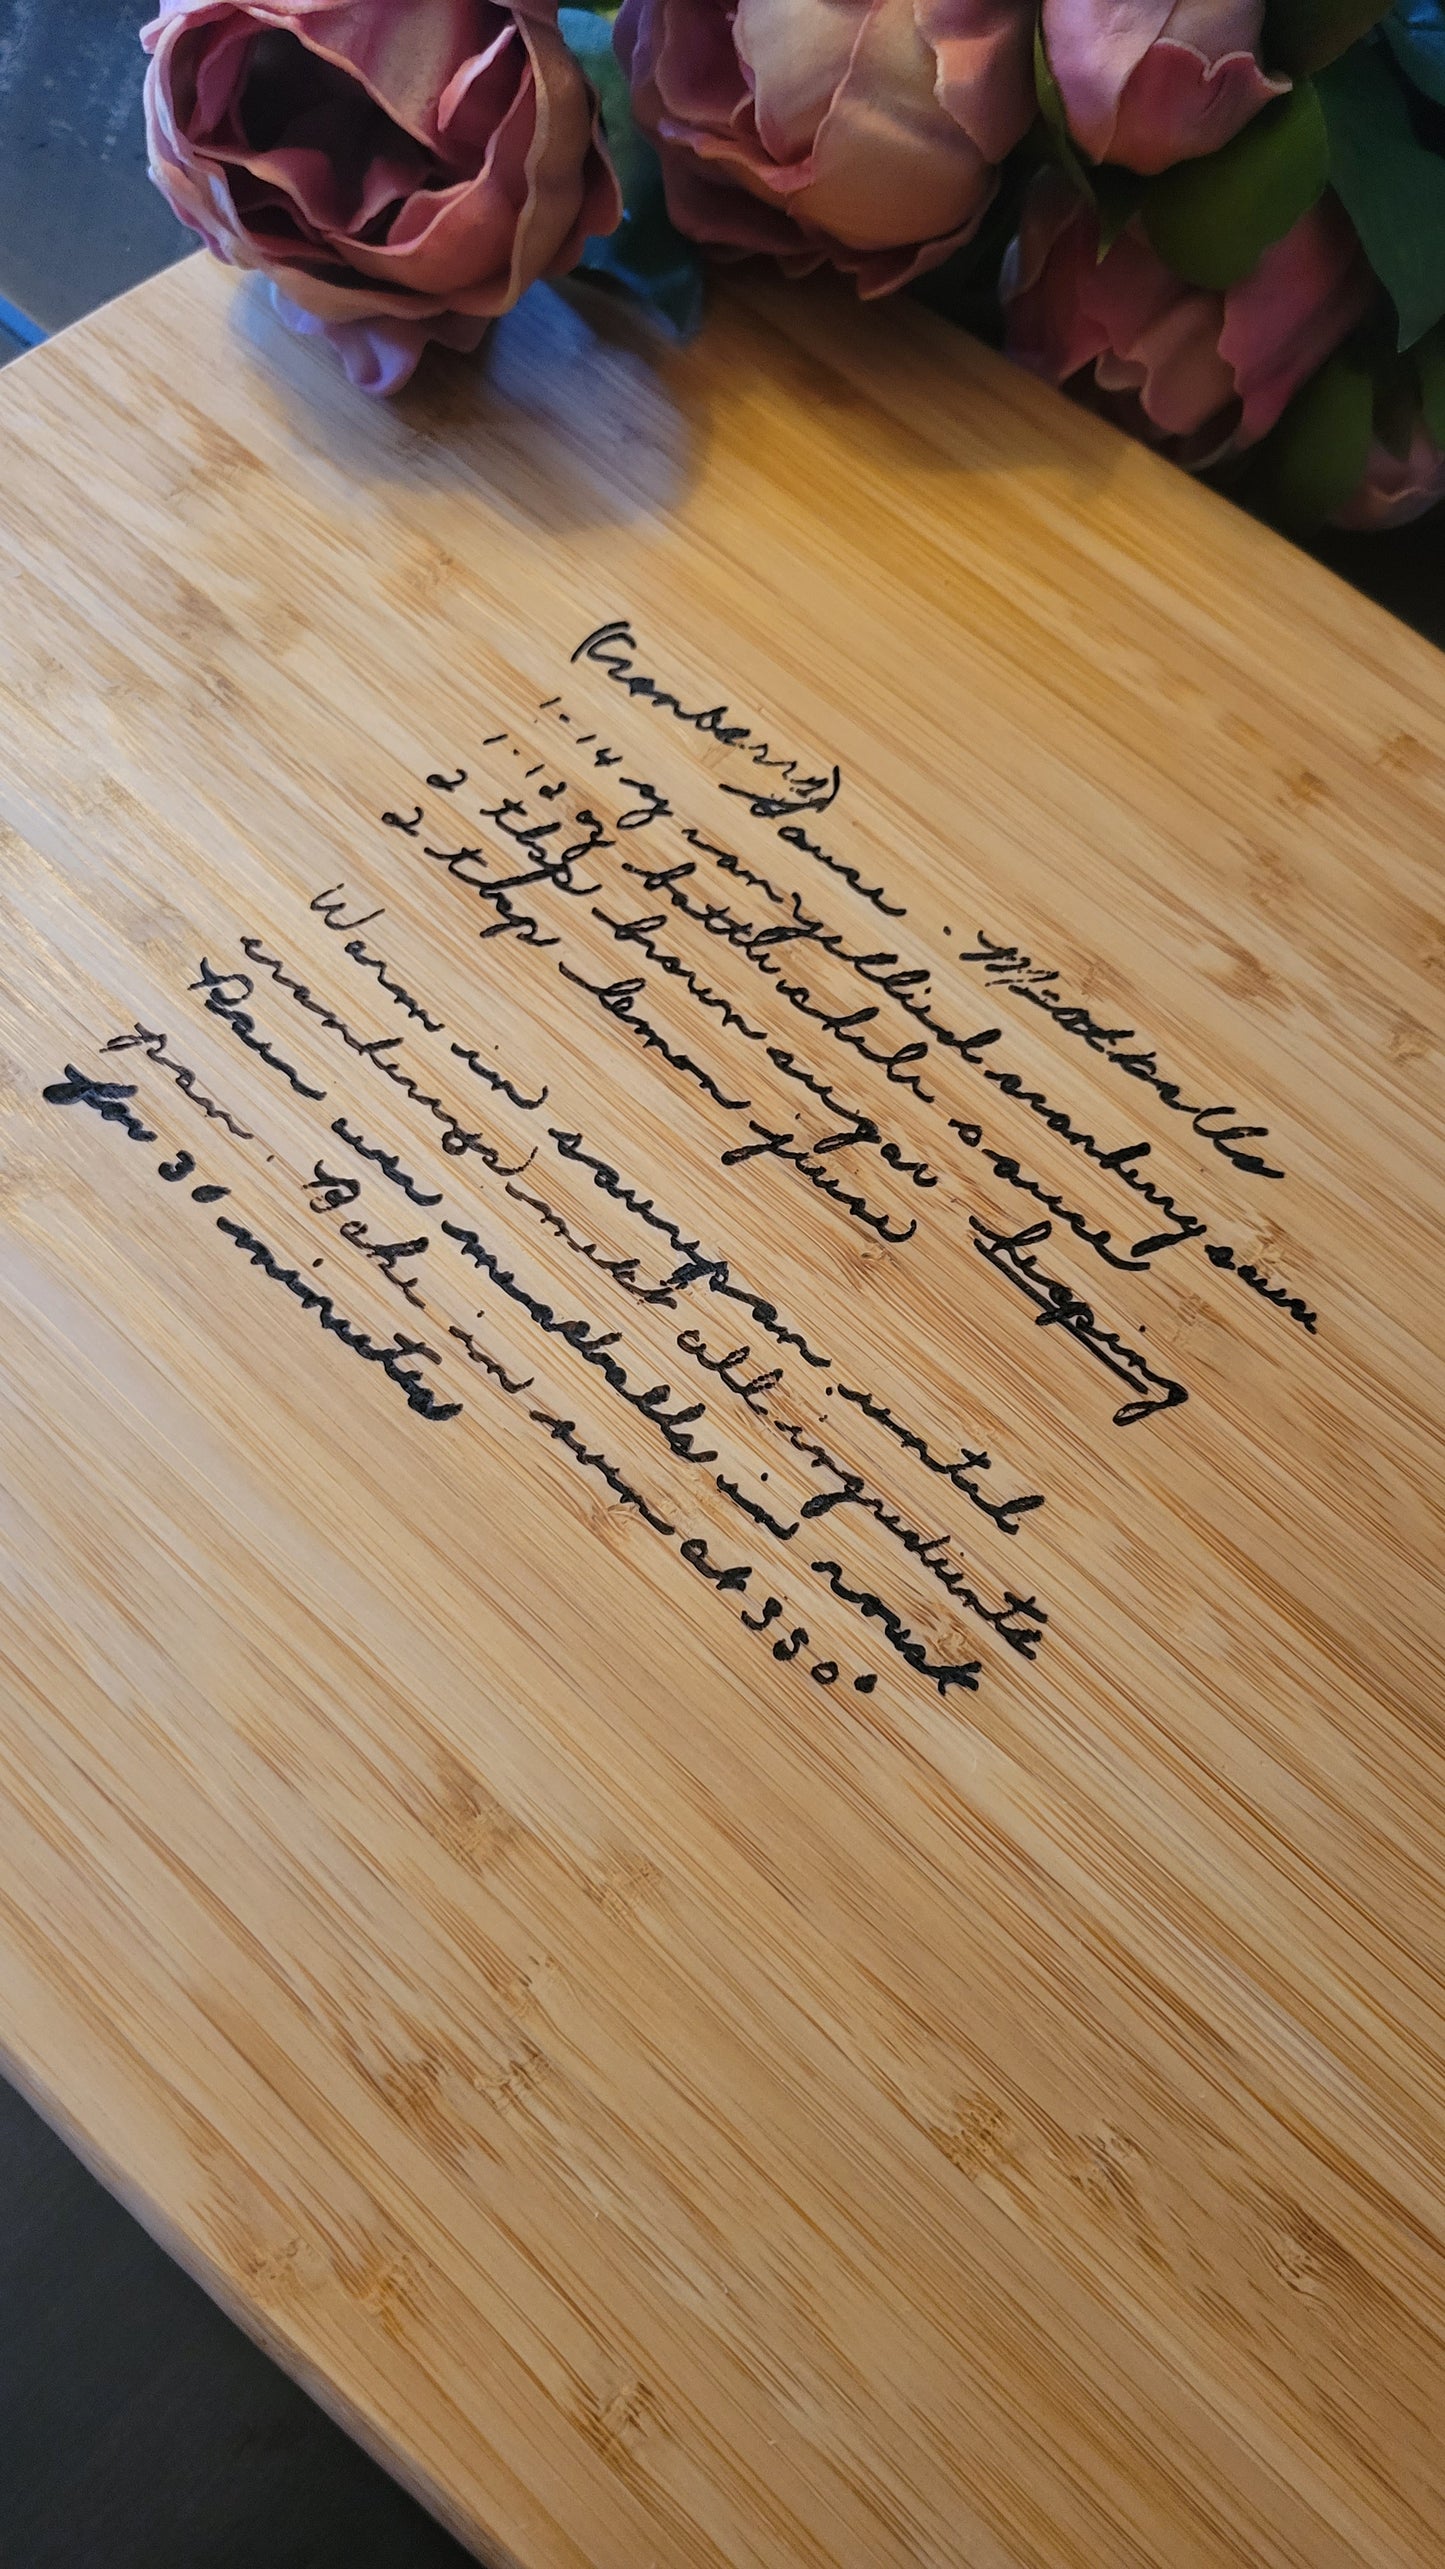 (Cranberry) Sauce. Meatballs
1-14 oz can jellied cranberry sauce
1-12 oz bottle chile sauce
2 tbsp brown sugar heaping
2 tbsp lemon juice
Warm in saucepan until
cranberry melt all ingredients
Pour over meatballs in roast
pan. Bake in oven at 350°
for 30 minutes